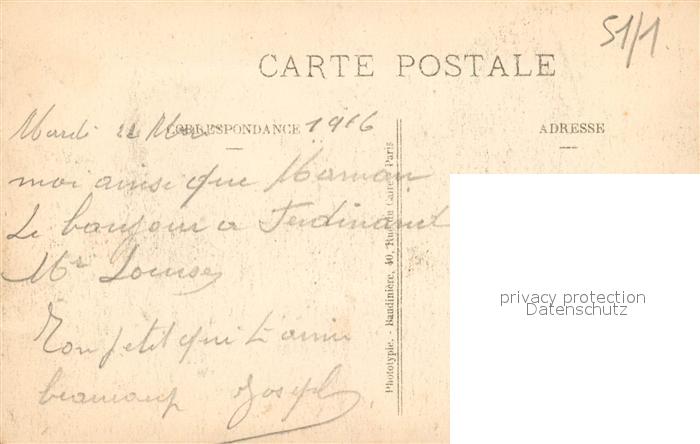 51/1.
CARTE POSTALE
Mardi 22 1916
CORRESPONDANCE
ADRESSE
moi ainsi que Maman
Le bonjour a Ferdinand
Mr Louise
Ton petit qui t'aime
beaucoup Joseph
Phototypie. - Baudinière, 40, Rue du Caire, Paris
privacy protection
Datenschutz